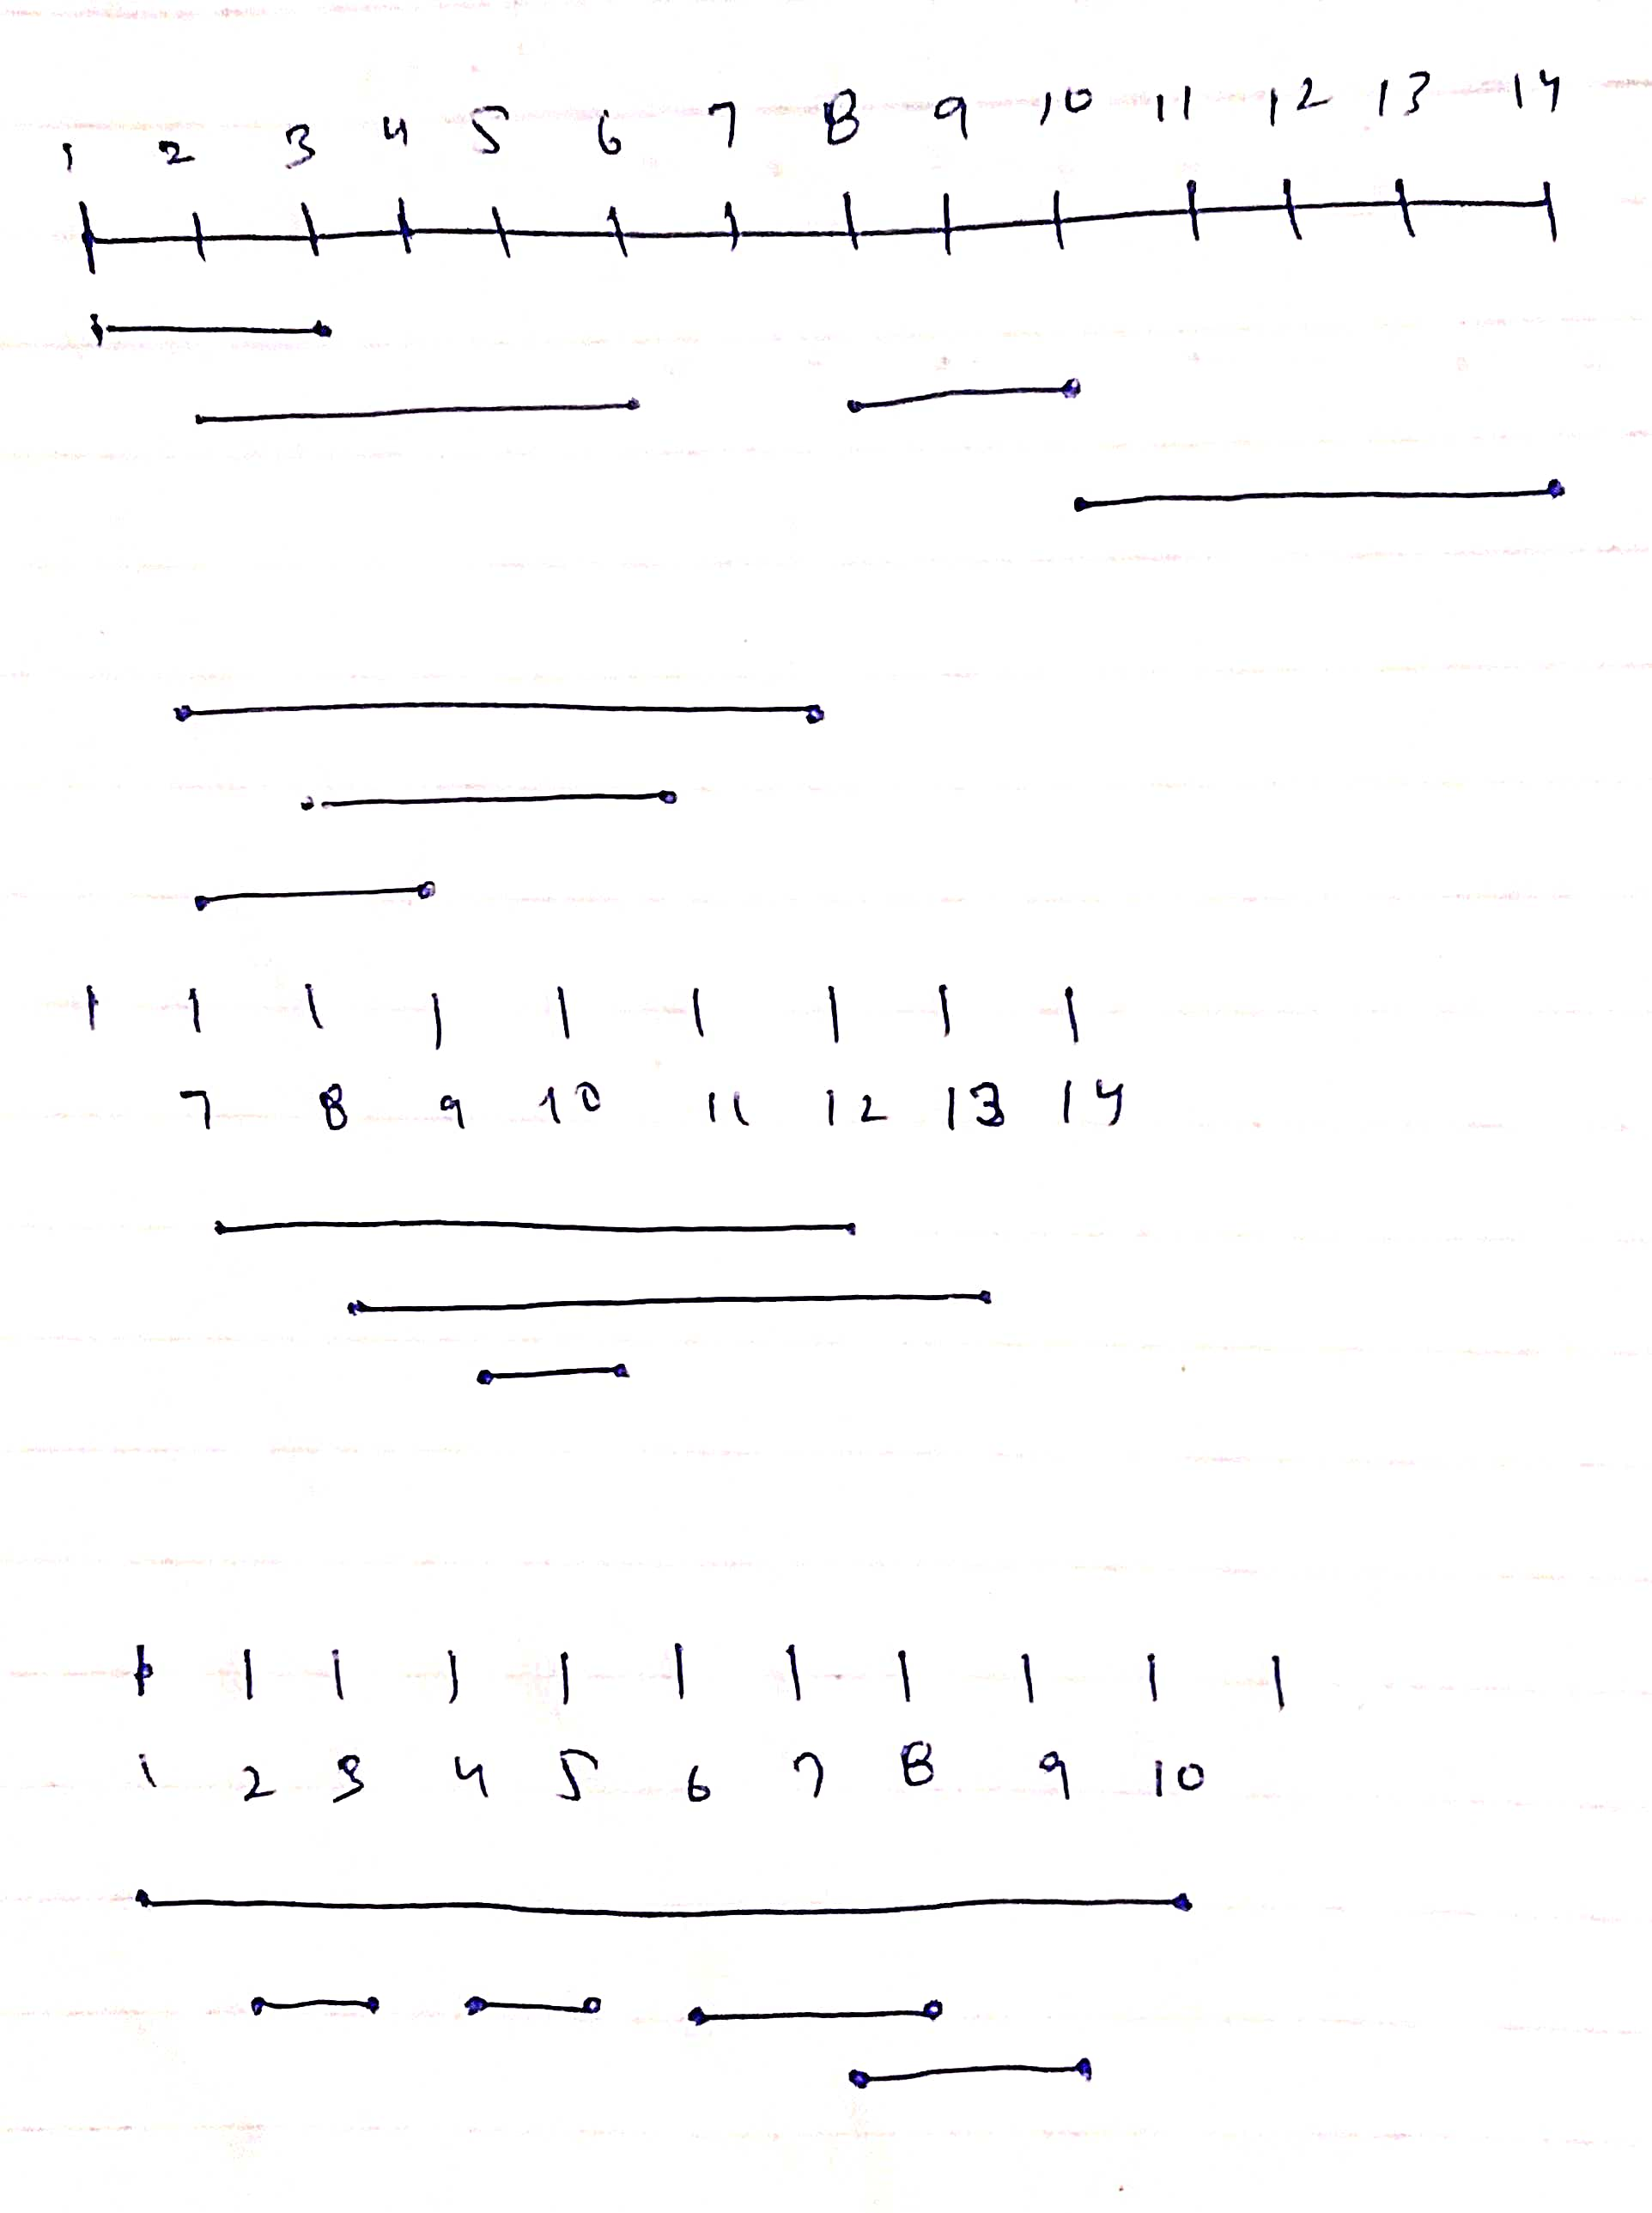 1 2 3 4 5 6 7 8 9 10 11 12 13 14
7 8 9 10 11 12 13 14
1 2 3 4 5 6 7 8 9 10